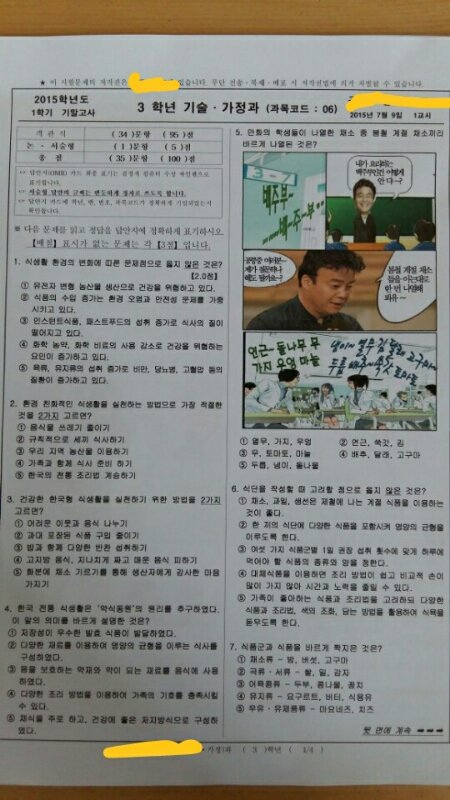 ★ 이 시험문제의 저작권은 있습니다. 무단 전송·복제·배포 시 저작권법에 의거 처벌될 수 있습니다.
2015학년도
1학기 기말고사
3 학년 기술·가정과 (과목코드 : 06)
2015년 7월 9일 1교시
객 관 식 ( 34 )문항 ( 95 )점
논 · 서술형 ( 1 )문항 ( 5 )점
총 점 ( 35 )문항 ( 100 )점
☞ 답안지(OMR) 카드 작성 표기는 검정색 컴퓨터 수성 싸인펜으로
표기합니다.
☞ 서술형 답안의
☞ 답안지 카드에 학년, 반, 번호, 과목코드가 정확하게 기입되었는지
확인합니다.
※ 다음 문제를 읽고 정답을 답안지에 정확하게 표기하시오.
【배점】표시가 없는 문제는 각 【3점】입니다.
1. 식생활 환경의 변화에 따른 문제점으로 옳지 않은 것은?
[2.0점]
① 유전자 변형 농산물 생산으로 건강을 위협하고 있다.
② 식품의 수입 증가는 환경 오염과 안전성 문제를 가중
시키고 있다.
③ 인스턴트식품, 패스트푸드의 섭취 증가로 식사의 질이
떨어지고 있다.
④ 화학 농약, 화학 비료의 사용 감소로 건강을 위협하는
요인이 증가하고 있다.
⑤ 육류, 유지류의 섭취 증가로 비만, 당뇨병, 고혈압 등의
질환이 증가하고 있다.
2. 환경 친화적인 식생활을 실천하는 방법으로 가장 적절한
것을 2가지 고르면?
① 음식물 쓰레기 줄이기
② 규칙적으로 세끼 식사하기
③ 우리 지역 농산물 이용하기
④ 가족과 함께 식사 준비 하기
⑤ 한국의 전통 조리법 계승하기
3. 건강한 한국형 식생활을 실천하기 위한 방법을 2가지
고르면?
① 어려운 이웃과 음식 나누기
② 과대 포장된 식품 구입 줄이기
③ 밥과 함께 다양한 반찬 섭취하기
④ 고지방 음식, 지나치게 짜고 매운 음식 피하기
⑤ 화분에 채소 기르기를 통해 생산자에게 감사한 마음
가지기
4. 한국 전통 식생활은 '약식동원'의 원리를 추구하였다.
이 말의 의미를 바르게 설명한 것은?
① 저장성이 우수한 발효 식품이 발달하였다.
② 다양한 재료를 이용하여 영양의 균형을 이루는 식사를
구성하였다.
③ 몸을 보호하는 약재와 약이 되는 재료를 음식에 사용
하였다.
④ 다양한 조리 방법을 이용하여 가족의 기호를 충족시킬
수 있다.
⑤ 채식을 주로 하고, 건강에 좋은 저지방식으로 구성하
였다.
5. 만화의 학생들이 나열한 채소 중 봄철 계절 채소끼리
바르게 나열된 것은?
3-7
배주부-
—배-주-부...
내가 요리하는
배주부인건 어떻게
안 다~?
공룡중 여러분~
제가 질문하나
해도 될까요~?
봄철 계절 채소
들을 아는대로
한 번 나열해
봐유~
연근~돌나무 무
가지 우엉 마늘
냉이~열무 감자 달래 고구마
두릅 배추 쑥갓 토마토
① 열무, 가지, 우엉
② 연근, 쑥갓, 김
③ 무, 토마토, 마늘
④ 배추, 달래, 고구마
⑤ 두릅, 냉이, 돌나물
6. 식단을 작성할 때 고려할 점으로 옳지 않은 것은?
① 채소, 과일, 생선은 제철에 나는 계절 식품을 이용하는
것이 좋다.
② 한 끼의 식단에 다양한 식품을 포함시켜 영양의 균형을
이루도록 한다.
③ 여섯 가지 식품군별 1일 권장 섭취 횟수에 맞게 하루에
먹어야 할 식품의 종류와 양을 정한다.
④ 대체식품을 이용하면 조리 방법이 쉽고 비교적 손이
많이 가지 않아 시간과 노력을 줄일 수 있다.
⑤ 가족이 좋아하는 식품과 조리법을 고려하되 다양한
식품과 조리법, 색의 조화, 담는 방법을 활용하여 식욕을
돋우도록 한다.
7. 식품군과 식품을 바르게 짝지은 것은?
① 채소류 - 밤, 버섯, 고구마
② 곡류 · 서류 - 쌀, 밀, 감자
③ 어육콩류 - 두부, 콩나물, 꽁치
④ 유지류 - 요구르트, 버터, 식용유
⑤ 우유 · 유제품류 - 마요네즈, 치즈
뒷 면에 계속 ➡➡➡
·가정)과 ( 3 )학년 ( 1/4 )